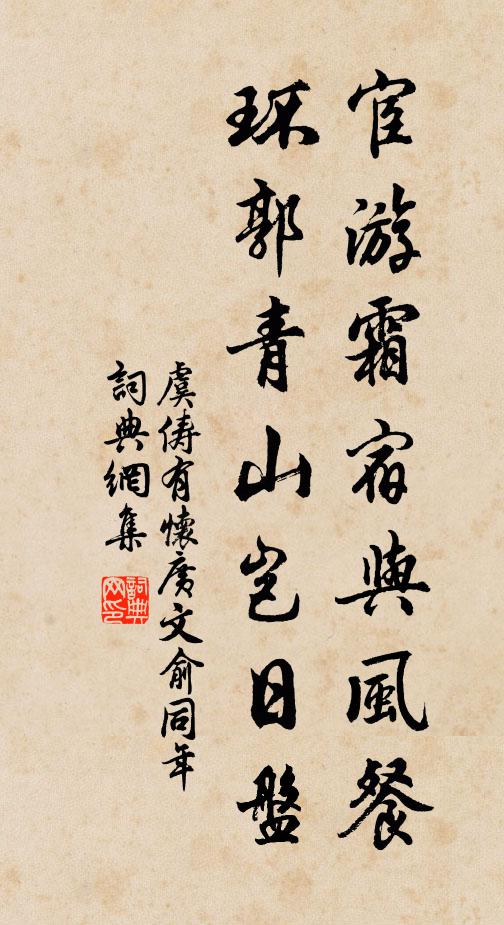 宦游霜宿與風餐
环郭青山岂日盤
虞俦有懷廣文俞同年
詞典網集
詞典网印